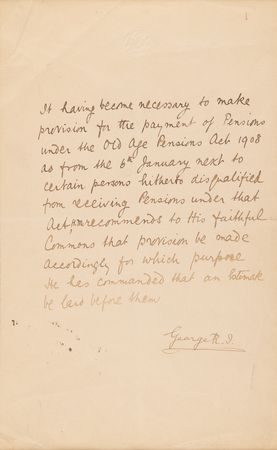 It having become necessary to make
provision for the payment of Pensions
under the Old Age Pensions Act 1908
as from the 6th January next to
certain persons hitherto disqualified
from receiving Pensions under that
Act recommends to His faithful
Commons that provision be made
accordingly for which purpose
He has commanded that an Estimate
be laid before them
George R. I.